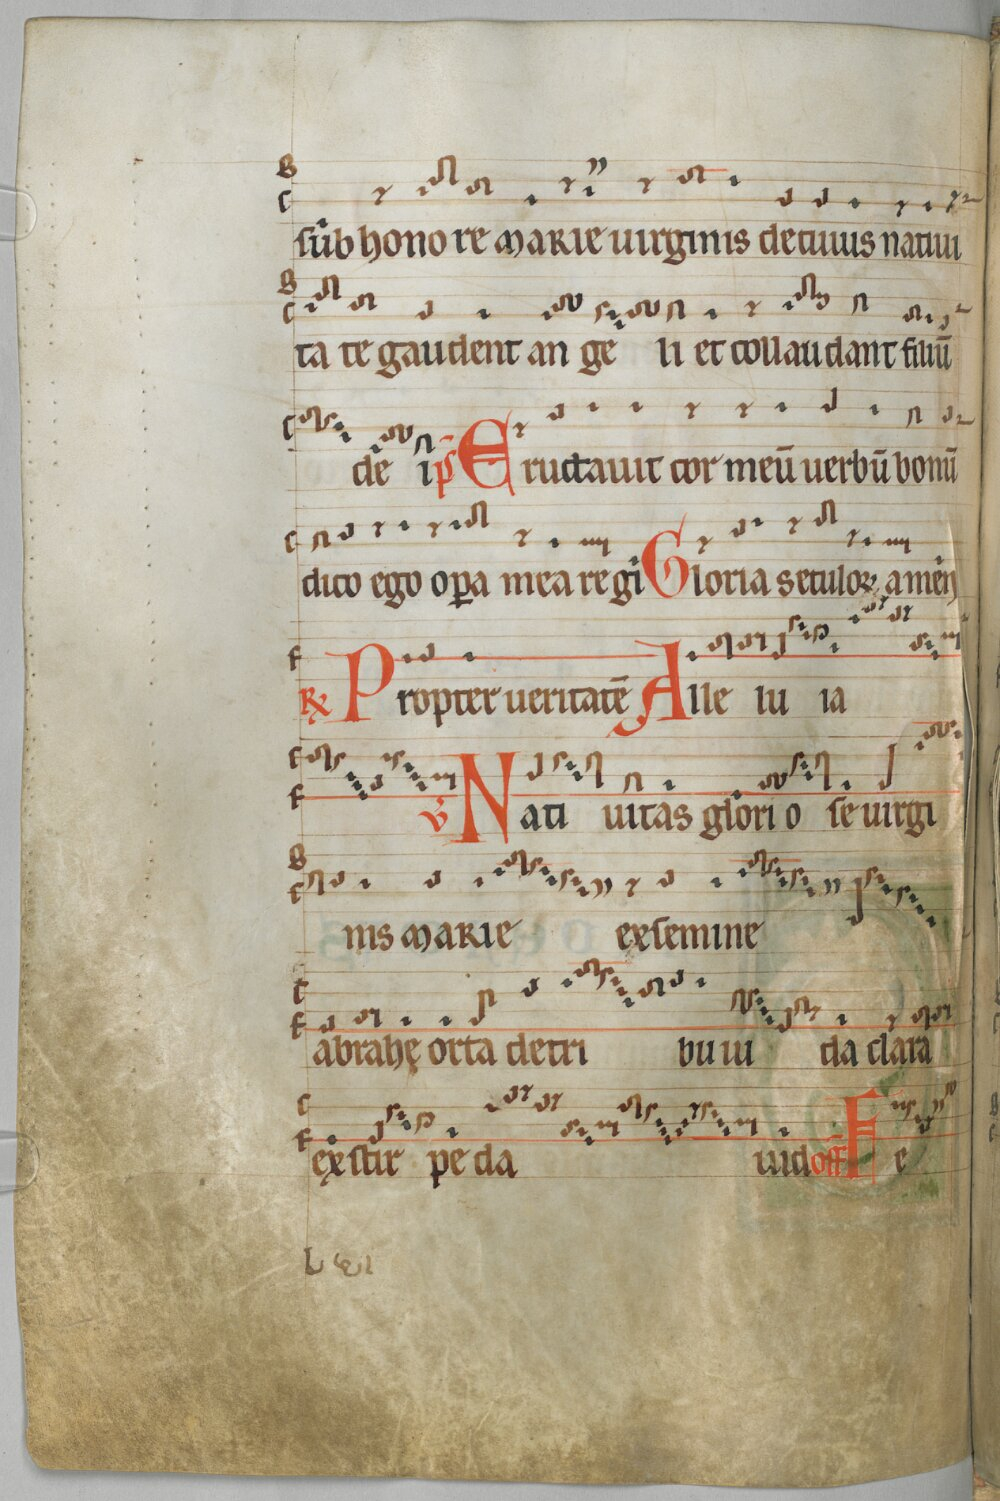 sub hono re MARIE uirginis de cuius natiui
ta te gaudent an ge li et collaudant filiū
de i p̄s Eructauit cor meū uerbū bonū
dico ego oꝑa mea regi Gloria seculoꝝ amen
℟ Propter ueritatē Alle lu ia
℣ Nati uitas glori o se uirgi
nis MARIE ex semine
abrahę orta de tri bu iu da clara
ex stir pe da uid off̄ Fe